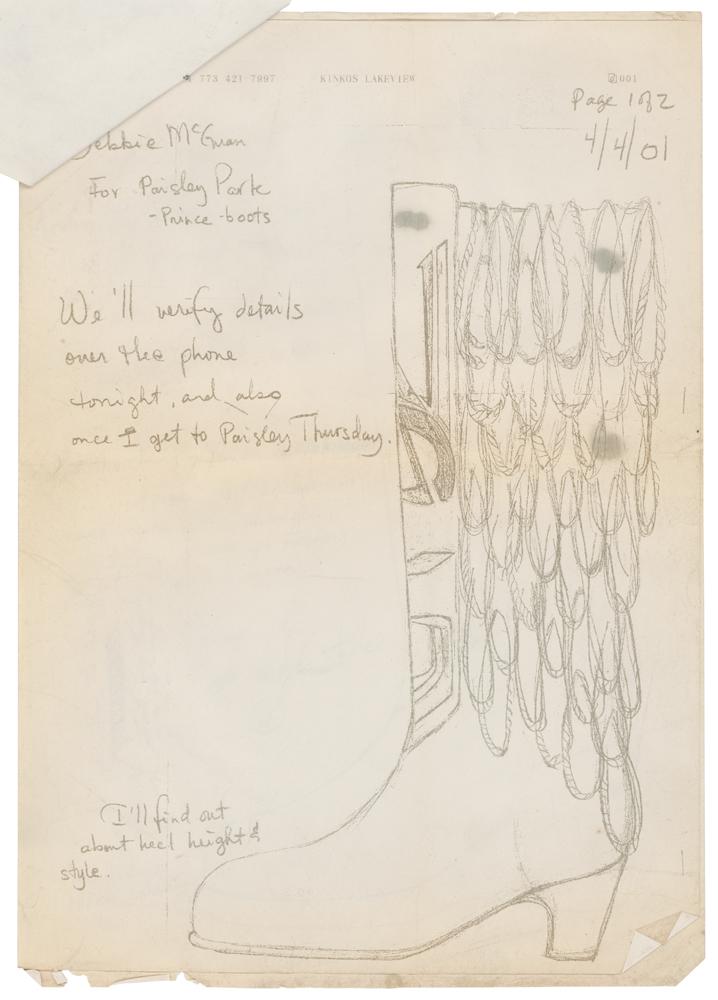 773 421 7997 KINKOS LAKEVIEW 001
Page 1 of 2
4/4/01
Debbie McGuan
For Paisley Park
-Prince-boots
We'll verify details
over the phone
tonight, and also
once I get to Paisley Thursday.
I'll find out
about heel height &
style.